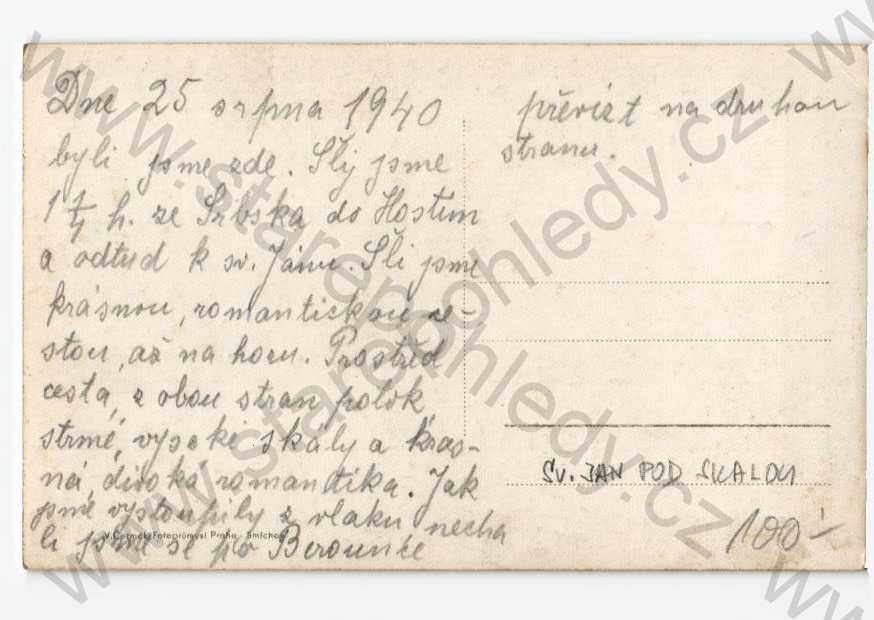 Dne 25 srpna 1940
byli jsme zde. Šly jsme
1 1/4 h. ze Srbska do Hostim
a odtud k sv. Jánu. Šli jsme
krásnou, romantickou ce-
stou, až na horu. Prostřed
cesta, z obou stran potok
strmé, vysoké skály a krás-
ná, divoká romantika. Jak
jsme vystoupily z vlaku necha
li jsme se po Berounce
V. Čermák, Fotoprůmysl Praha - Smíchov
převézt na druhou
stranu.
SV. JAN POD SKALOU
100-
www.starepohledy.cz
www.starepohledy.cz